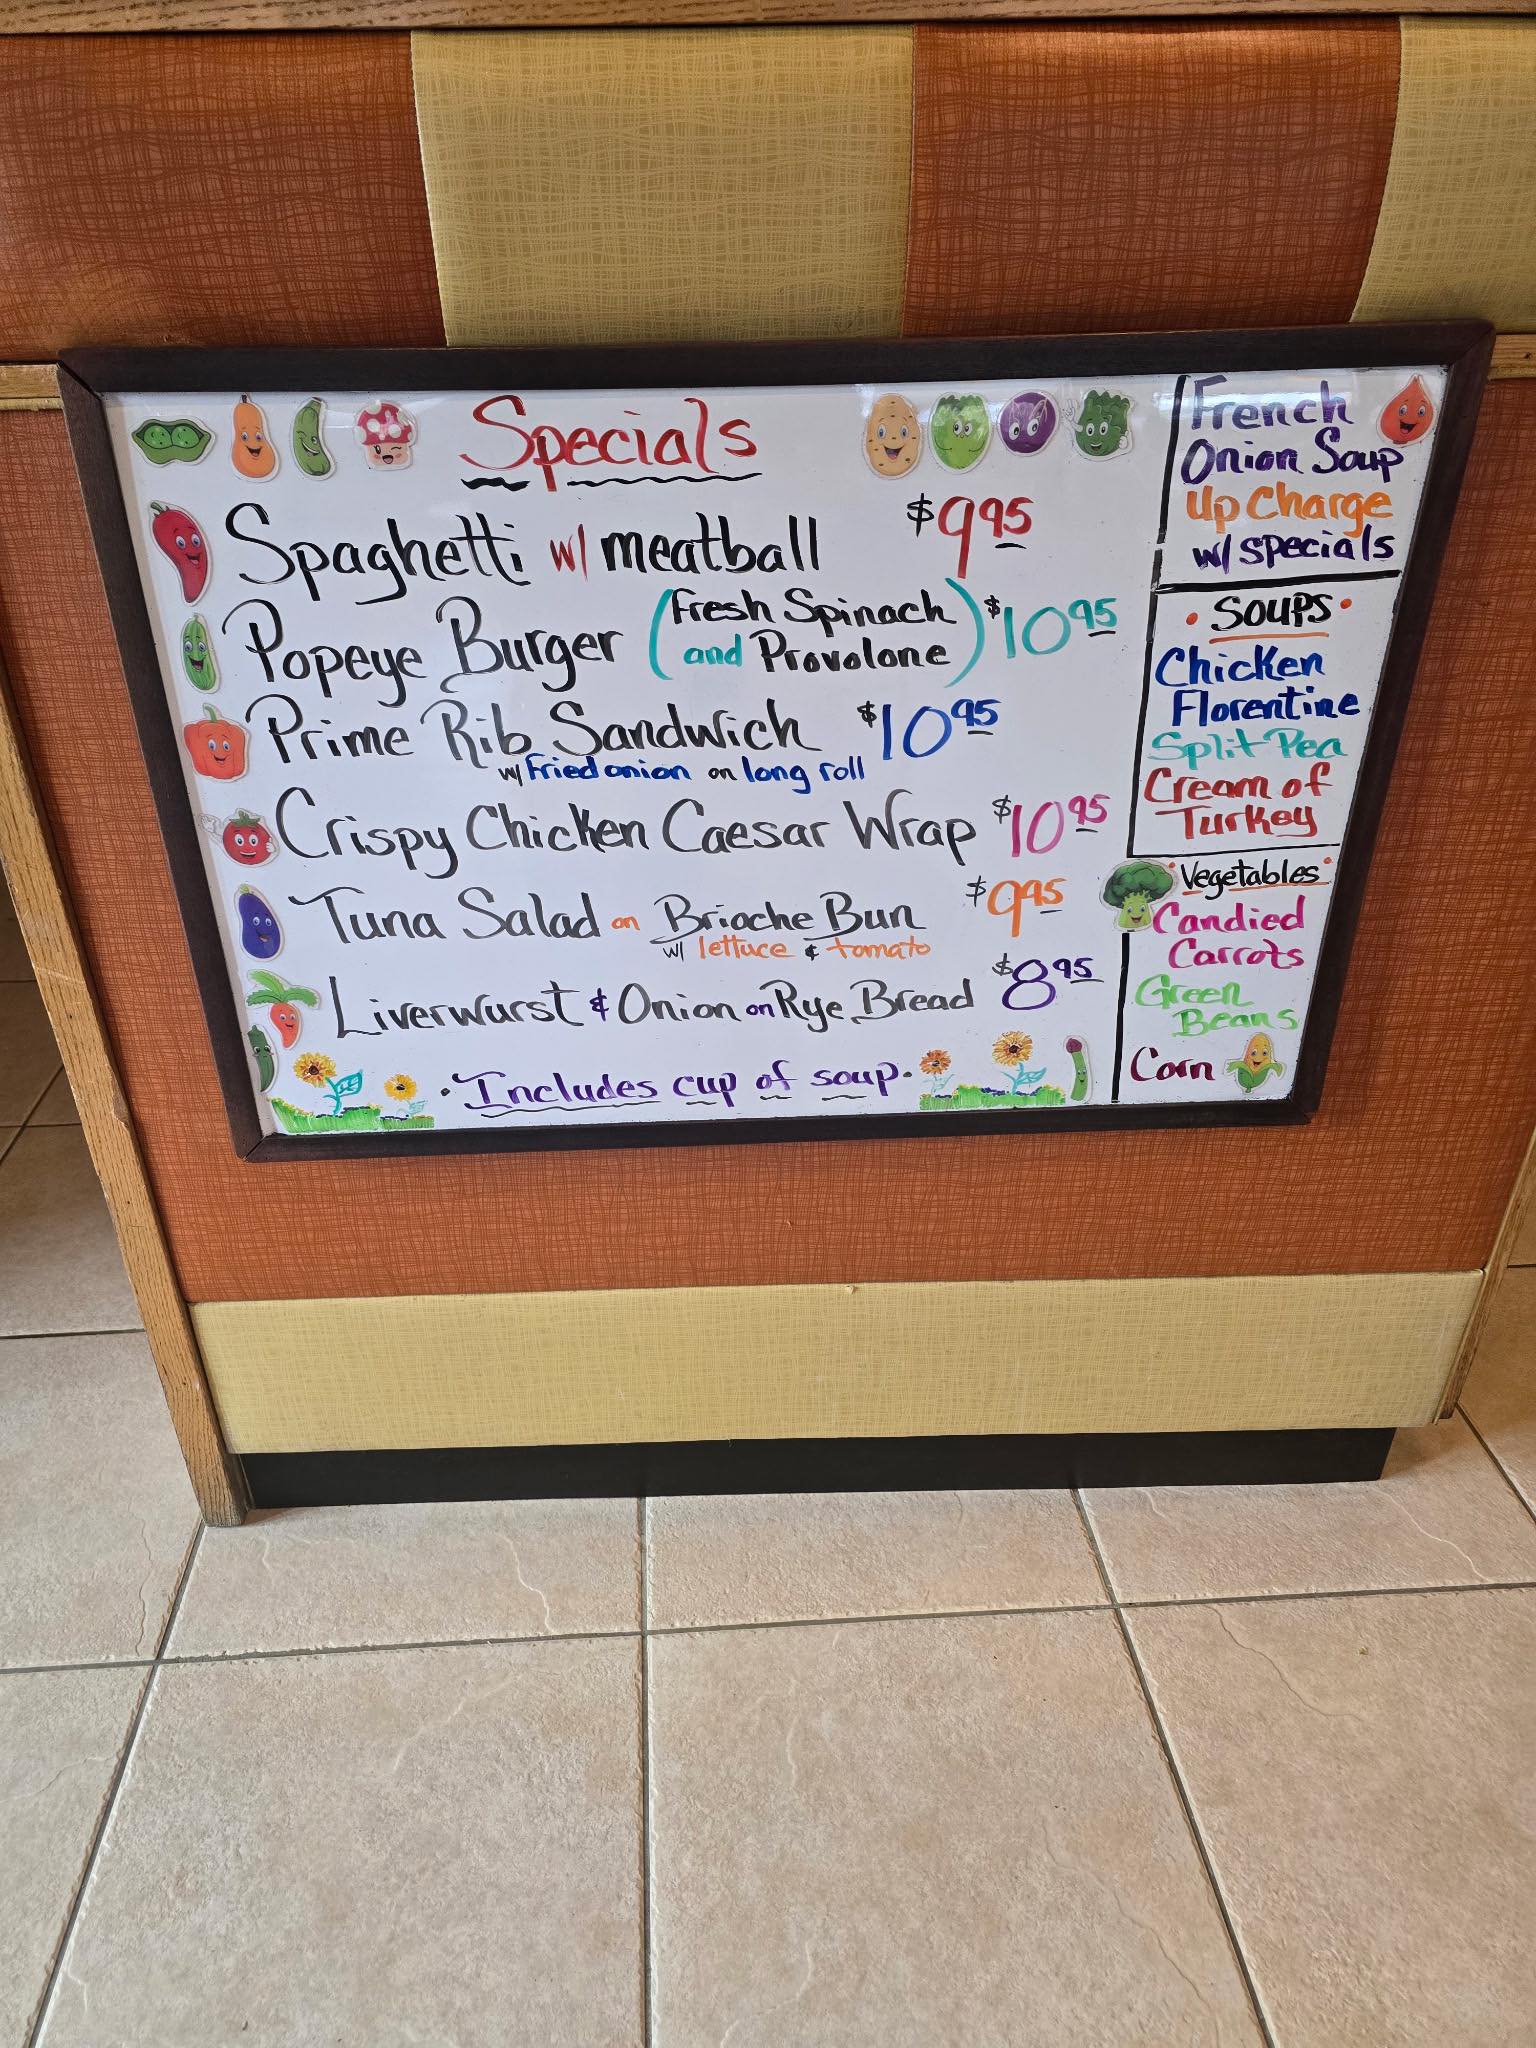 Specials
Spaghetti w/ meatball $9.95
Popeye Burger (Fresh Spinach and Provolone) $10.95
Prime Rib Sandwich $10.95
w/ fried onion on long roll
Crispy Chicken Caesar Wrap $10.95
Tuna Salad on Brioche Bun $9.95
w/ lettuce & tomato
Liverwurst & Onion on Rye Bread $8.95
• Includes cup of soup •
French
Onion Soup
Up Charge
w/ specials
• SOUPS •
Chicken
Florentine
Split Pea
Cream of
Turkey
• Vegetables •
Candied
Carrots
Green
Beans
Corn